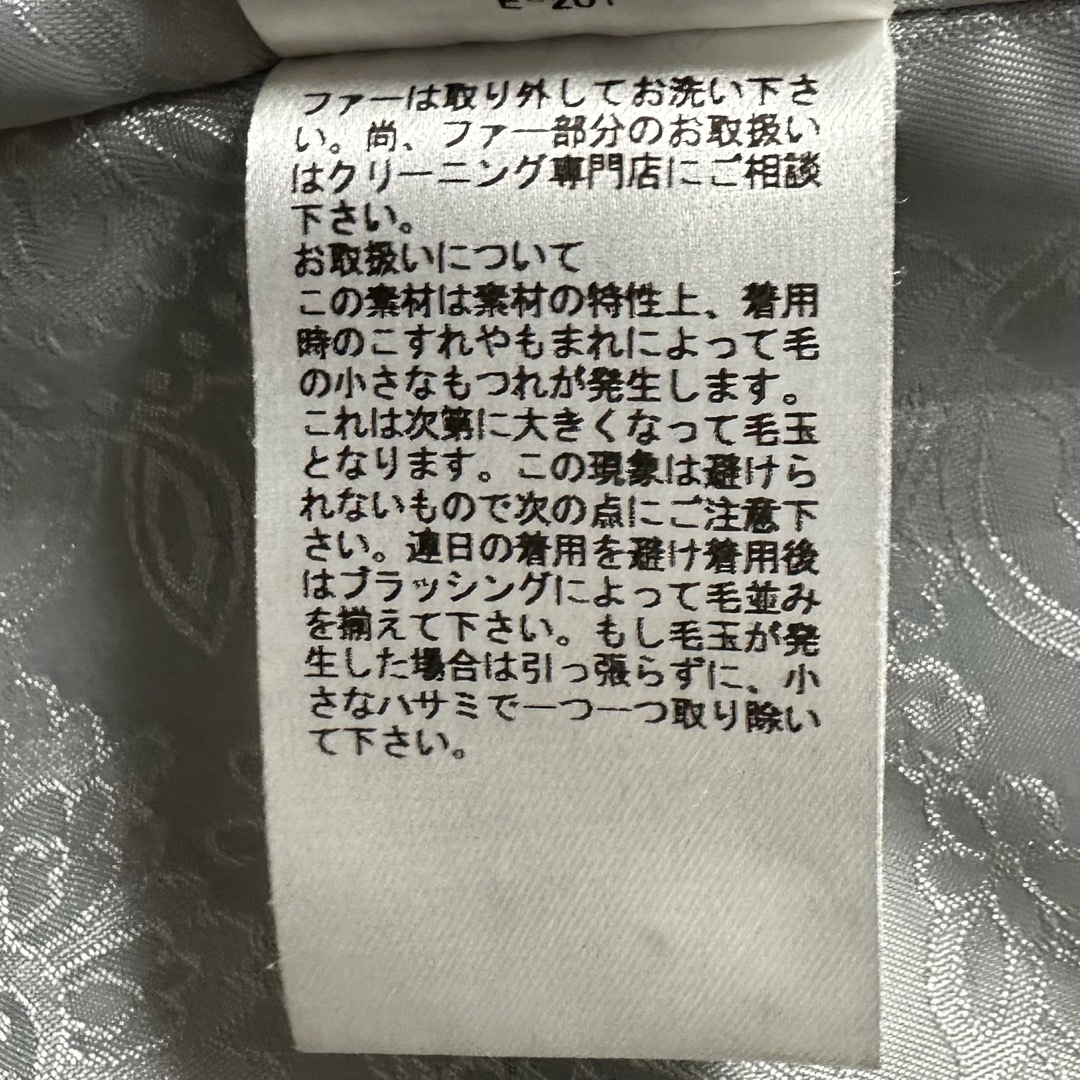 ファーは取り外してお洗い下さ
い。尚、ファー部分のお取扱い
はクリーニング専門店にご相談
下さい。
お取扱いについて
この素材は素材の特性上、着用
時のこすれやもまれによって毛
の小さなもつれが発生します。
これは次第に大きくなって毛玉
となります。この現象は避けら
れないもので次の点にご注意下
さい。連日の着用を避け着用後
はブラッシングによって毛並み
を揃えて下さい。もし毛玉が発
生した場合は引っ張らずに、小
さなハサミで一つ一つ取り除い
て下さい。